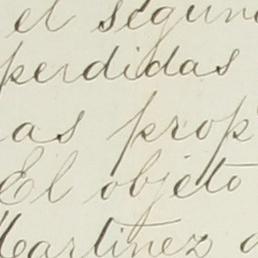 el segun
perdidas
as prop
El objeto
Martinez